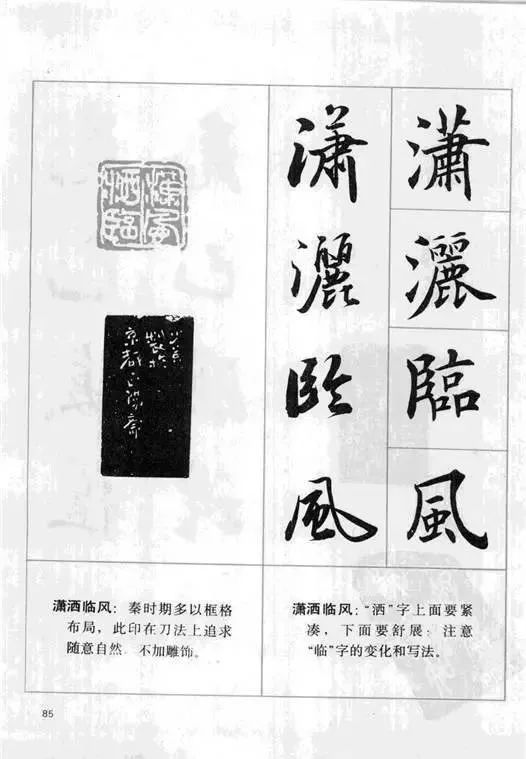 瀟灑臨風
瀟灑臨風
潇洒临风：秦时期多以框格
布局，此印在刀法上追求
随意自然，不加雕饰。
潇洒临风：“洒”字上面要紧
凑，下面要舒展；注意
“临”字的变化和写法。
85